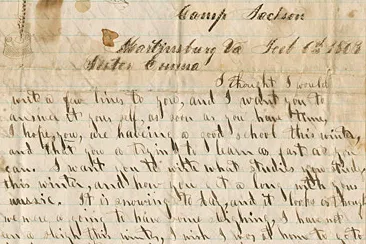 Camp Jackson
Martinsburg Va Feb 6th 1863
Sister Emma
I thought I would
write a few lines to you, and I want you to
answer it your self, as soon as you have time,
I hope, you, are habeing a good school this winter,
and that you a trying to learn as fast as you
can. I want you to write what studies you study,
this winter, and how you get a long, with your
music. It is snowing to day, and it looks as though
we ware a going to have some sleighing, I have not
an a sleigh this winty, I wish I was at home to